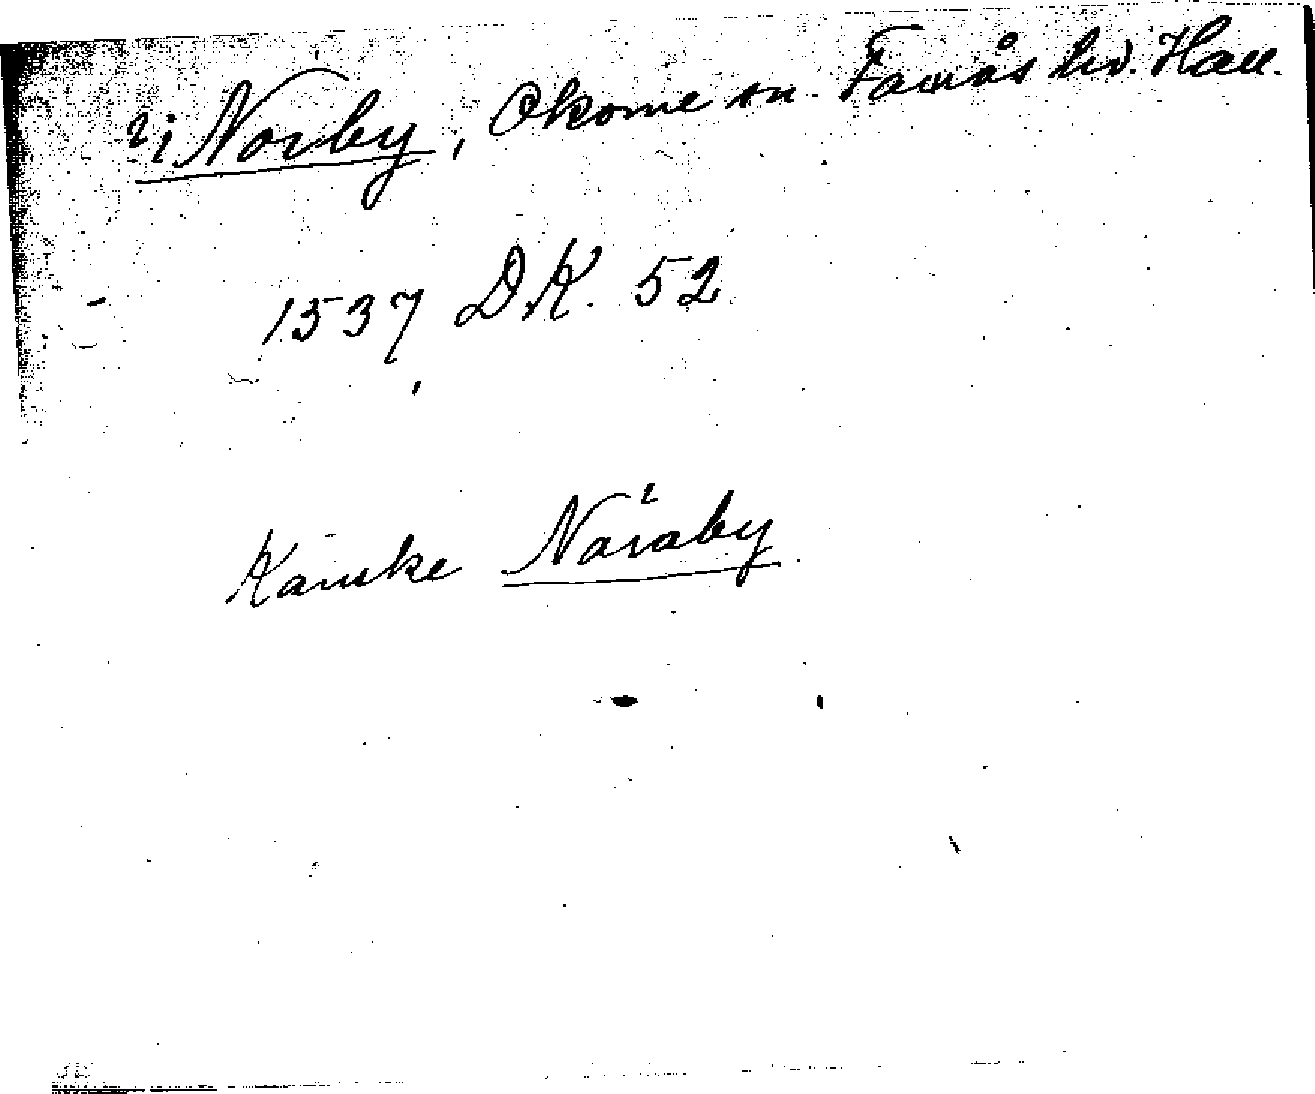 i Norby, Okome sn. Faurås hd. Hall.
1537 DK. 52
Kanske Naraby